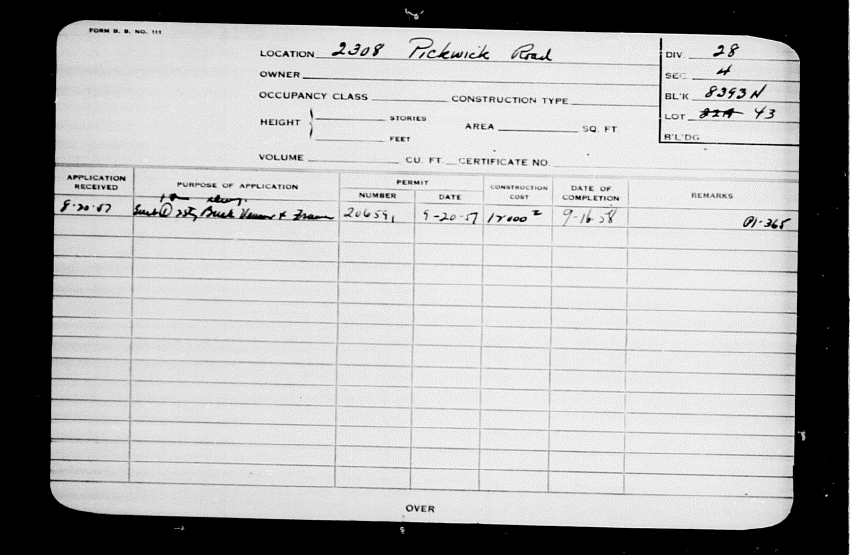 FORM B. B. NO. 111
LOCATION 2308 Pickwick Road
OWNER
OCCUPANCY CLASS CONSTRUCTION TYPE
HEIGHT STORIES AREA SQ. FT.
FEET
VOLUME CU. FT. CERTIFICATE NO.
DIV. 28
SEC. 4
BL'K 8393N
LOT 43
B'L'DG
APPLICATION RECEIVED
PURPOSE OF APPLICATION
PERMIT
NUMBER
DATE
CONSTRUCTION COST
DATE OF COMPLETION
REMARKS
1 fam dwg.
9-20-57 Erect ① sty Brick Veneer & Frame 206591 9-20-57 12000 9-16-58 P1-365
OVER